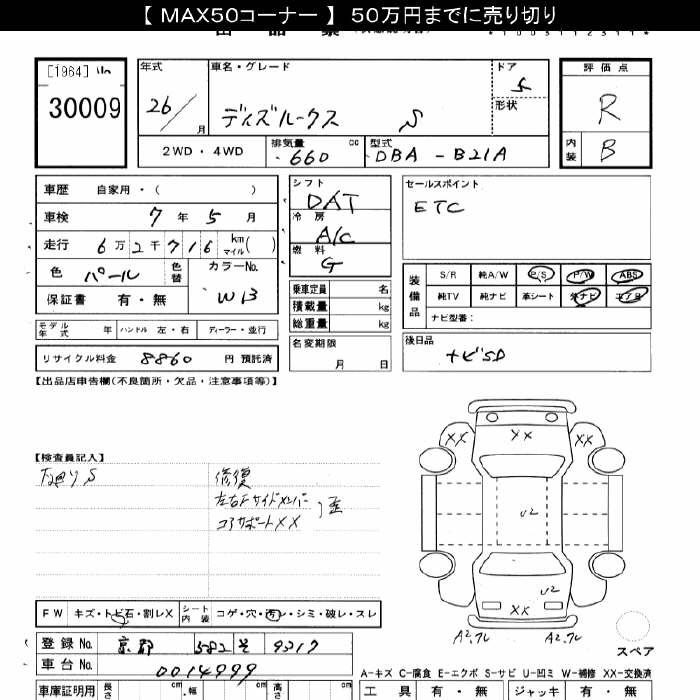 【 MAX50コーナー 】 50万円までに売り切り
[1964]
30009
年式
26/
月
車名・グレード
ディズルークス S
ドア
5
形状
評価点
R
内装
B
2WD・4WD
排気量
660
cc
型式
DBA - B21A
車歴 自家用・( )
車検 7年 5月
走行 6万2千716 km マイル( )
色 パール
色替
カラーNo.
W13
保証書 有・無
シフト
DAT
冷房
A/C
燃料
G
乗車定員 名
積載量 kg
総重量 kg
名変期限
月 日
セールスポイント
ETC
装備品
S/R 純A/W P/S P/W ABS
純TV 純ナビ 革シート 外ナビ エアB
ナビ型番:
後日品
ナビSD
モデル年式 年 ハンドル 左・右 ディーラー・並行
リサイクル料金 8860 円 預託済
【出品店申告欄(不良箇所・欠品・注意事項等)】
【検査員記入】
下廻りS
修復
左右Fサイドメンバー
コアサポートXX
歪
XX
YY
XX
U2
U2
XX
A2.アレ
A2.アレ
スペア
FW キズ・トビ石・割レX
シート内装
コゲ・穴・汚レ・シミ・破レ・スレ
登録No. 京都 582 そ 9317
車台No. 0014999
A-キズ C-腐食 E-エクボ S-サビ U-凹ミ W-補修 XX-交換済
車庫証明用
長さ cm
幅 cm
高さ cm
工具 有・無 ジャッキ 有・無